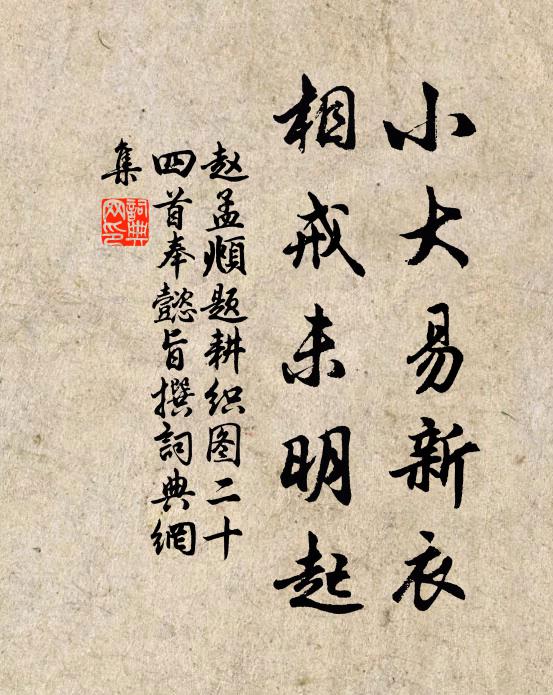 小大易新衣
相戒未明起
赵孟頫题耕织图二十
四首奉懿旨撰詞典網
集
詞典網印